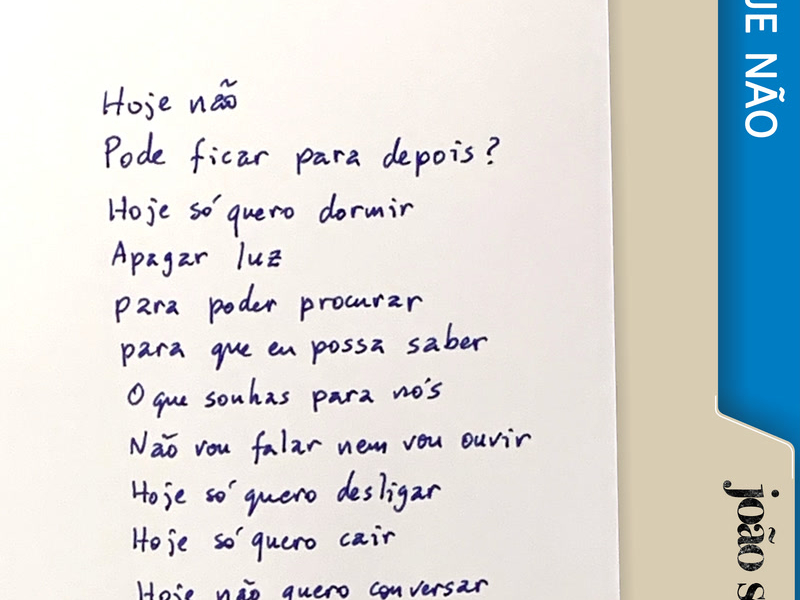 Hoje não
Pode ficar para depois?
Hoje só quero dormir
Apagar luz
para poder procurar
para que eu possa saber
O que sonhas para nós
Não vou falar nem vou ouvir
Hoje só quero desligar
Hoje só quero cair
Hoje não quero conversar
UE NÃO
joão s